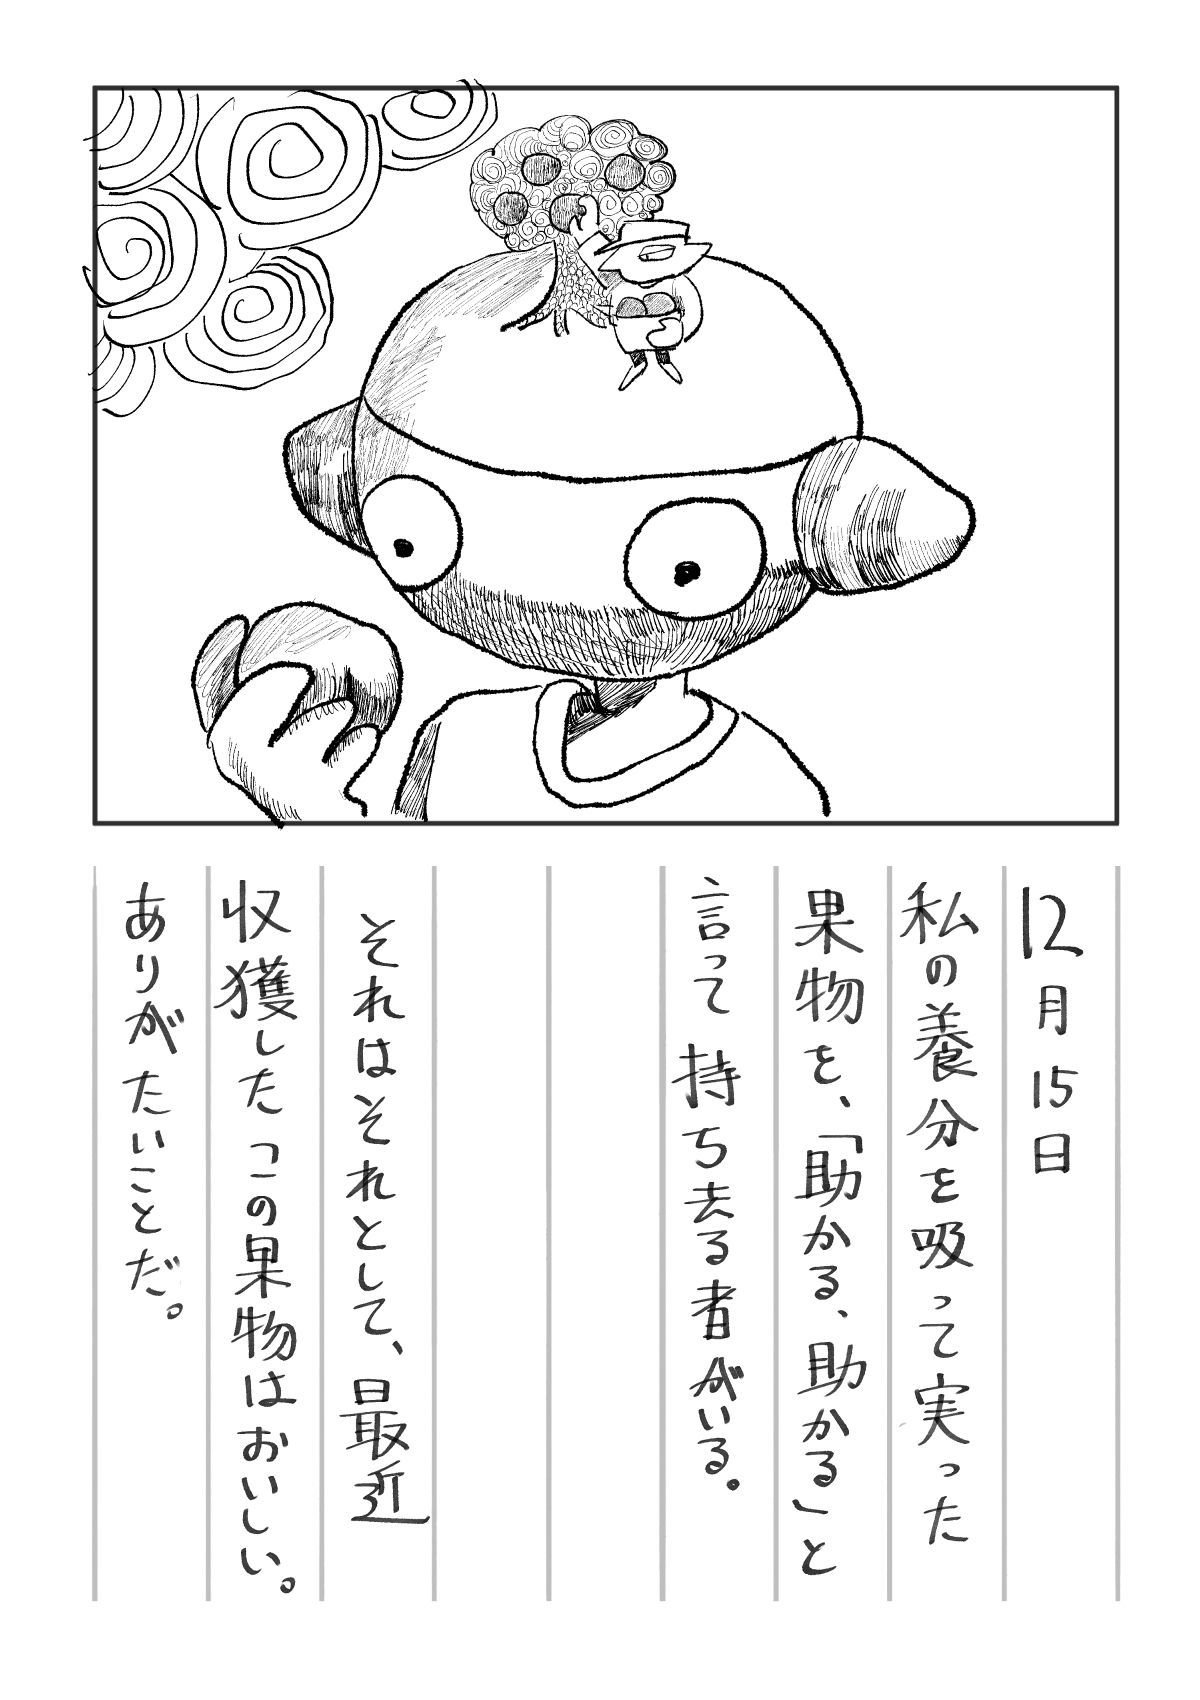 12月15日
私の養分を吸って実った
果物を、「助かる、助かる」と
言って持ち去る者がいる。
それはそれとして、最近
収獲したこの果物はおいしい。
ありがたいことだ。